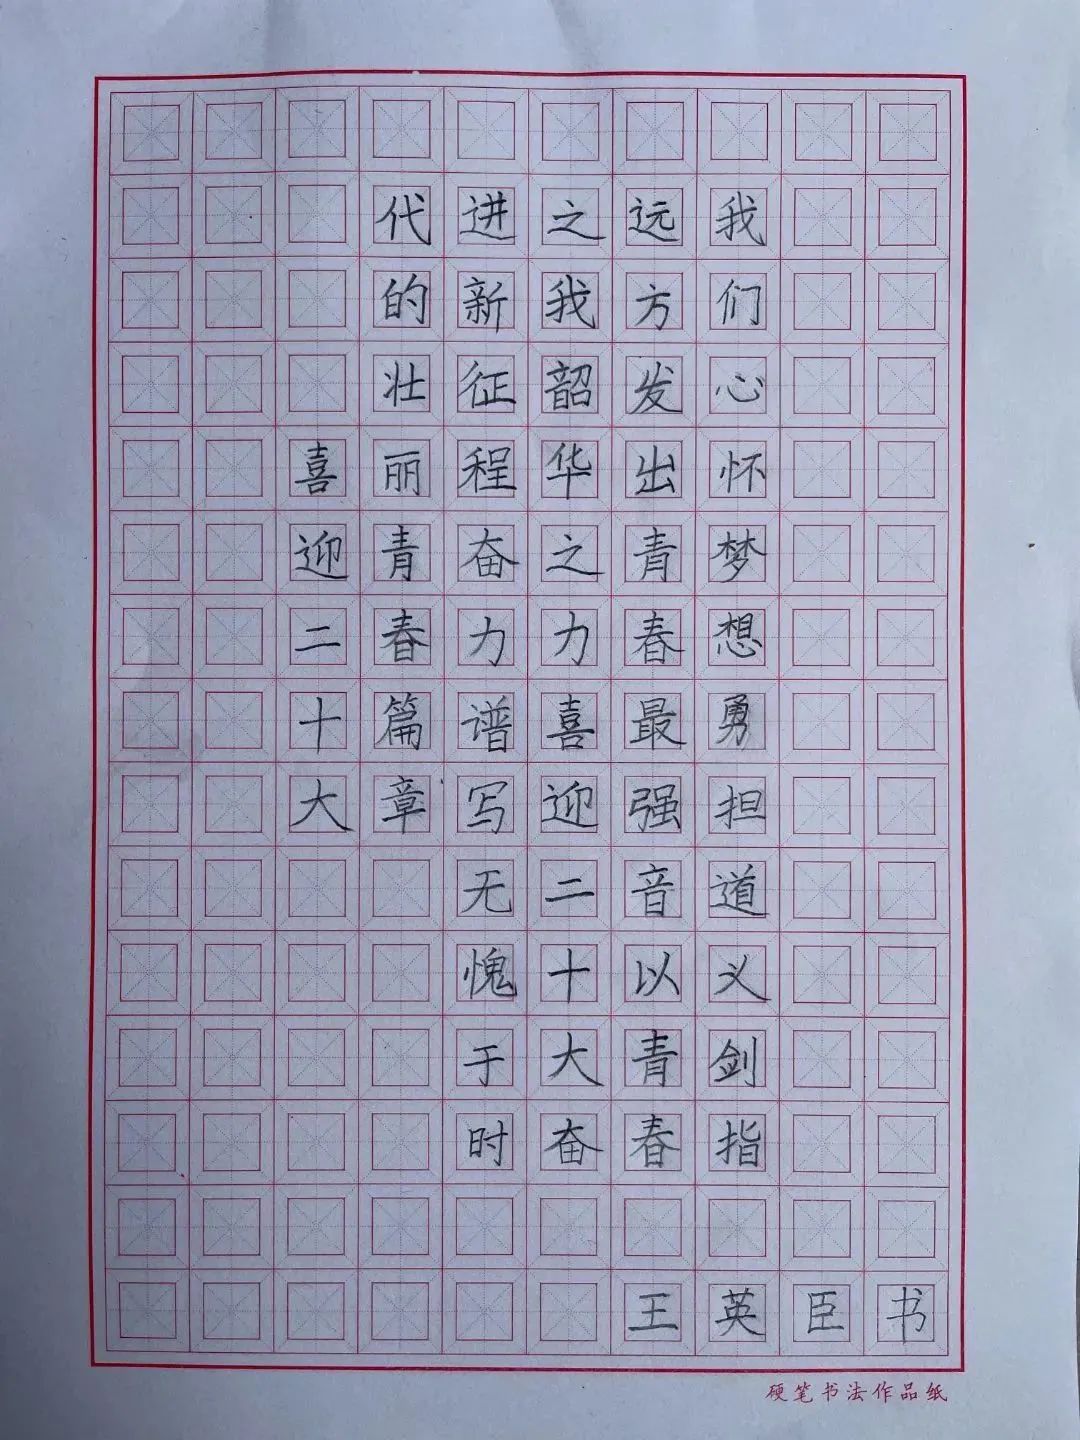 我们心怀梦想勇担道义剑指
远方发出青春最强音以青春
之我韶华之力喜迎二十大奋
进新征程奋力谱写无愧于时
代的壮丽青春篇章
喜迎二十大
王英臣书
硬笔书法作品纸